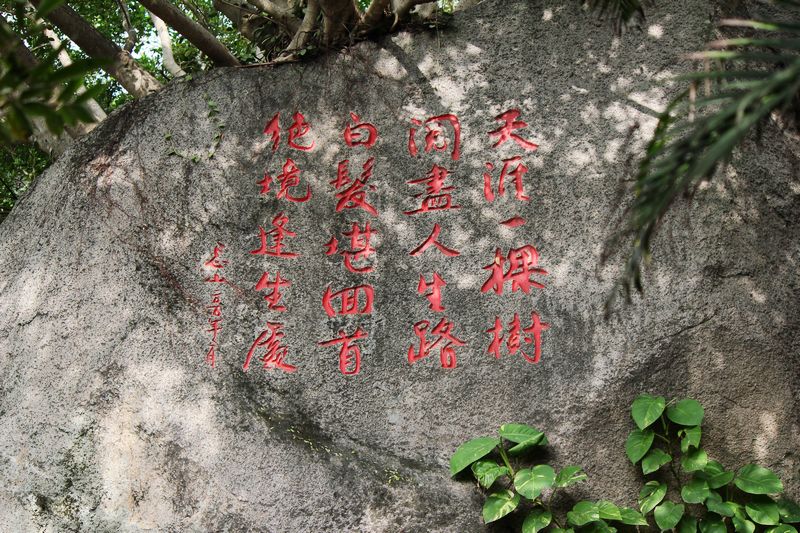 天涯一棵樹
閱盡人生路
白髮堪回首
絶境逢生處